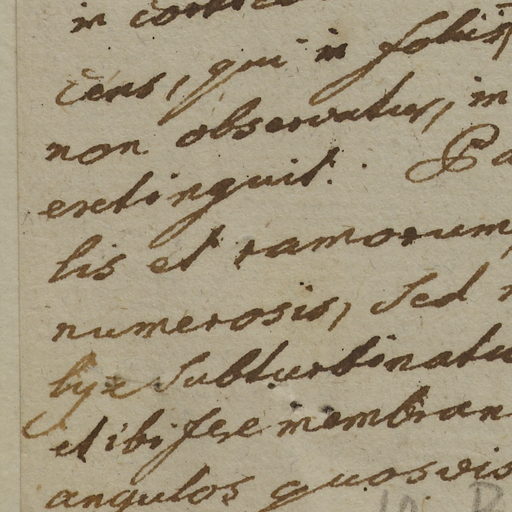 in cortice
cens, qui in foliis
non observatur, in
extinguit. Pa
lis et ramorum,
numerosis, sed
lyx subturbinatu
et ibi fere membran
angulos quosvis